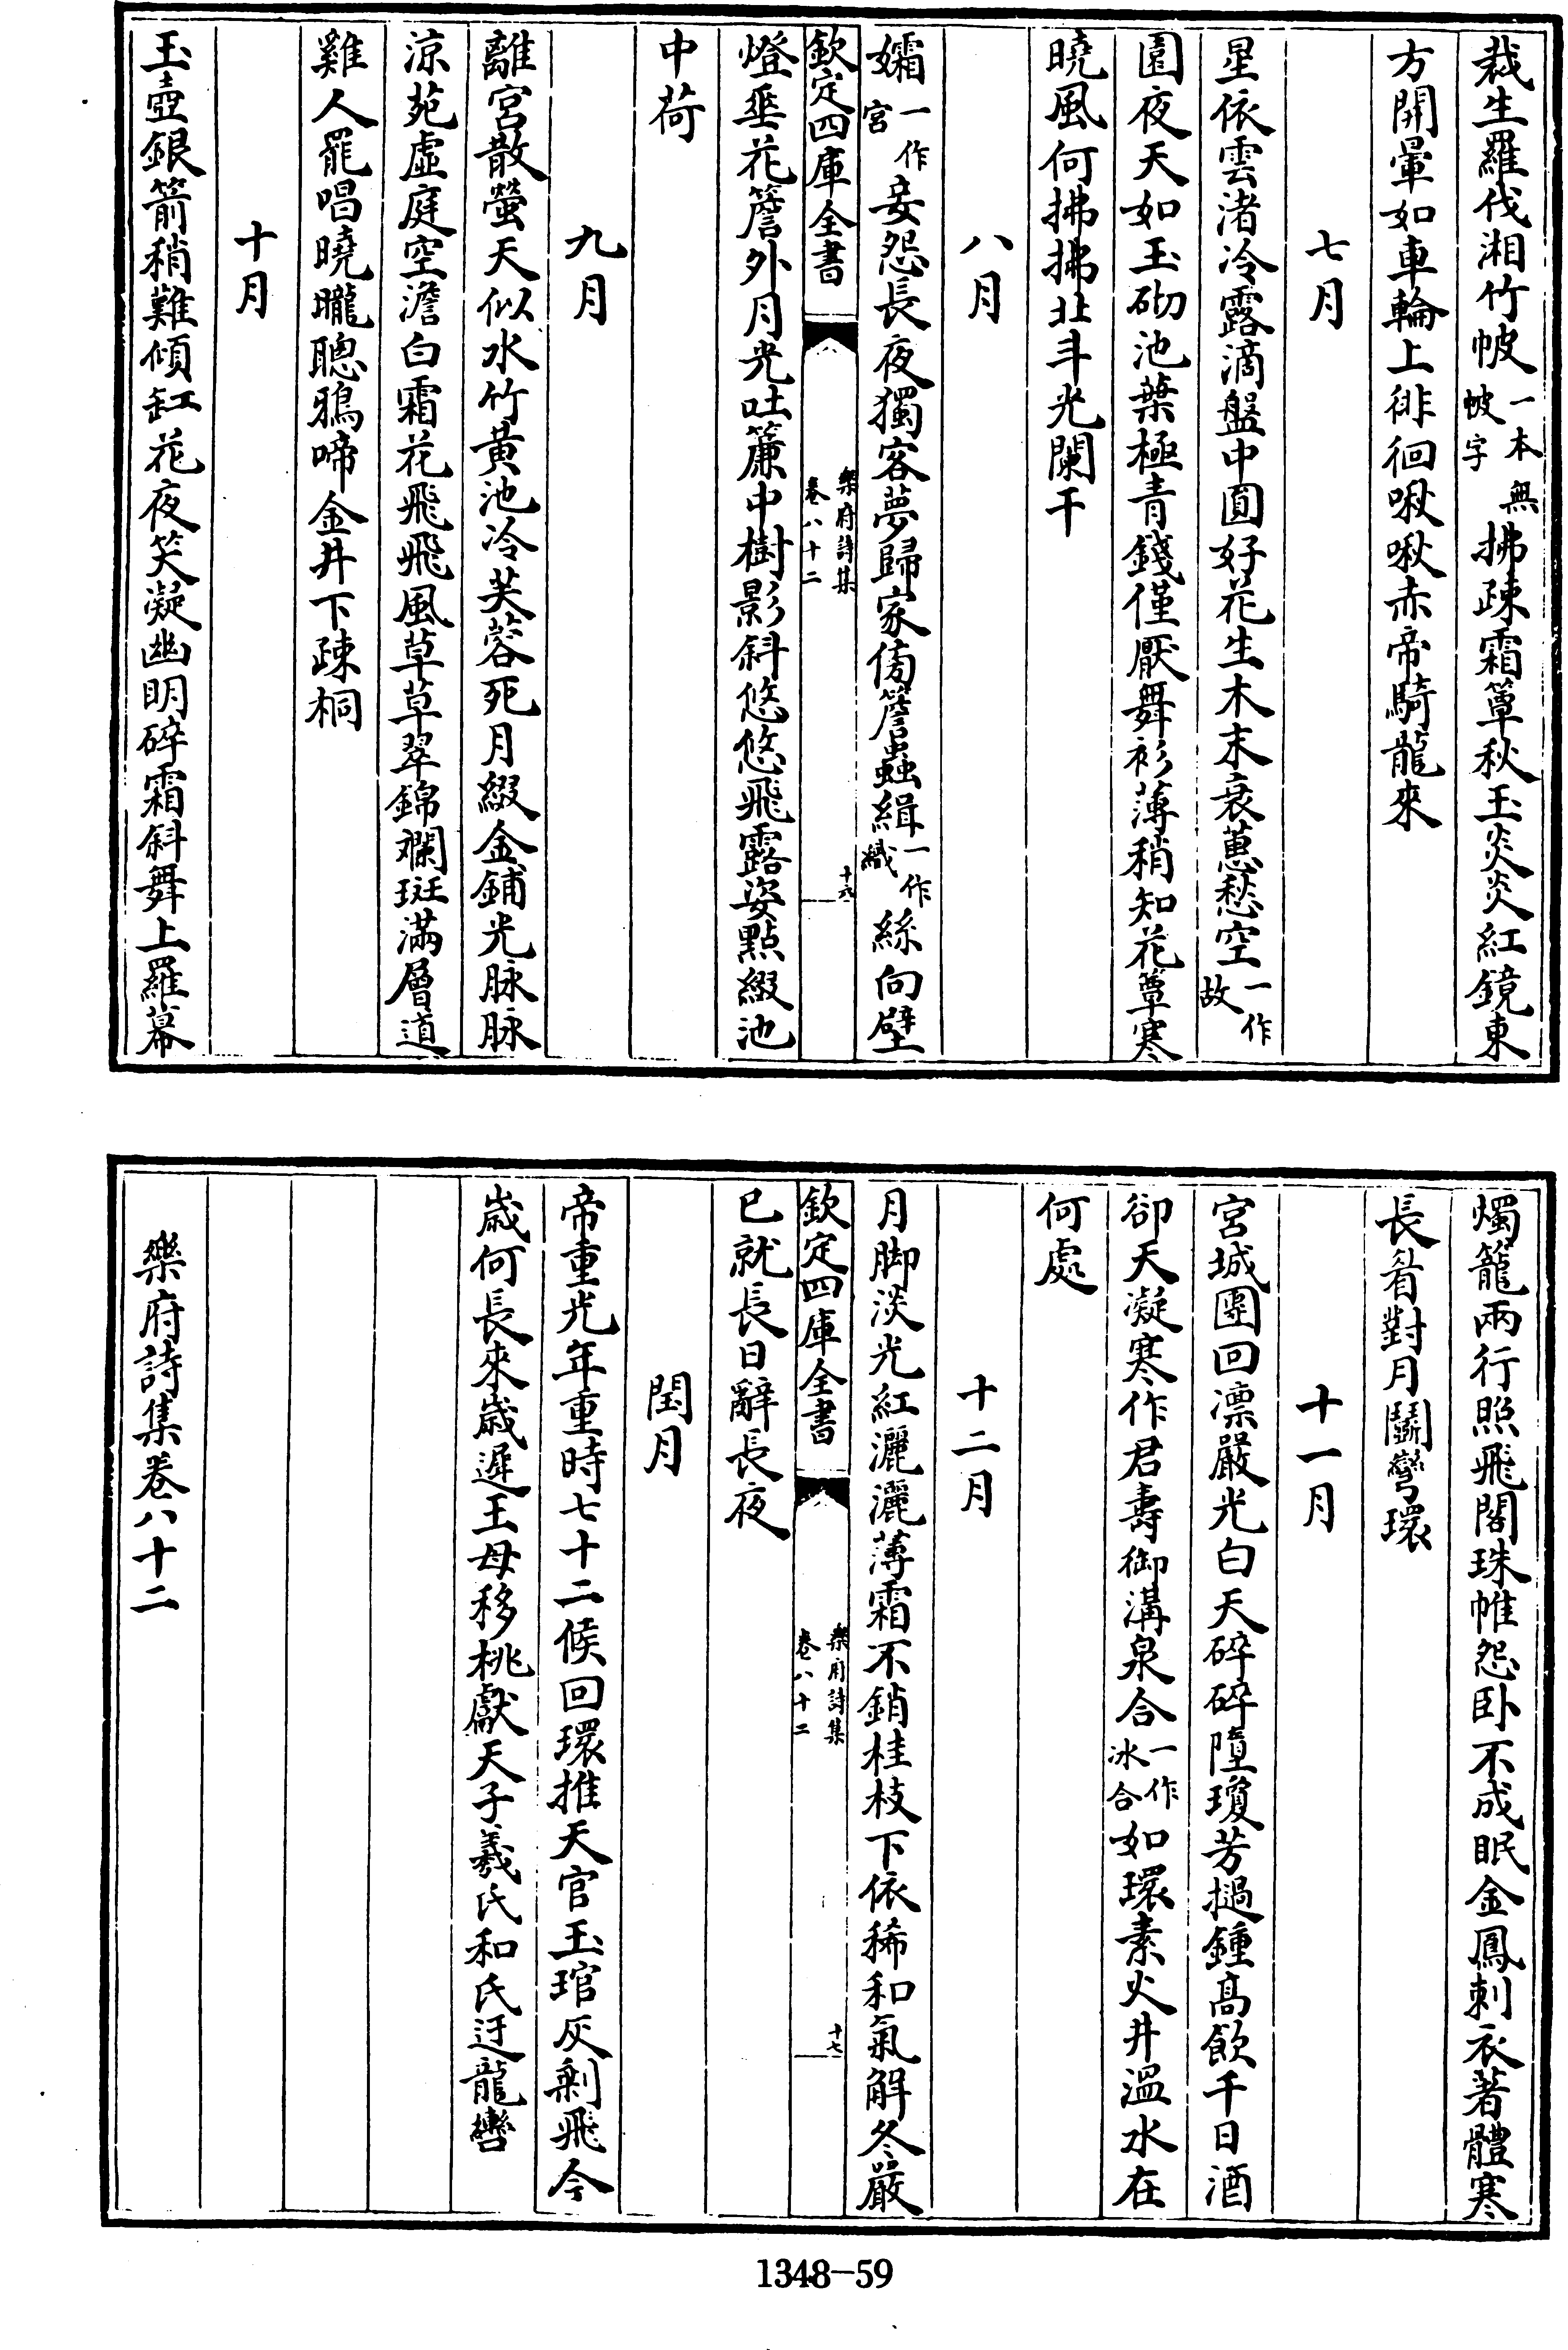 裁生羅伐湘竹帔一本無帔字拂疎霜簟秋玉炎炎紅鏡東
方開暈如車輪上徘徊啾啾赤帝騎龍來
七月
星依雲渚冷露滴盤中圓好花生木末衰蕙愁空一作故
園夜天如玉砌池葉極青錢僅厭舞衫薄稍知花簟寒
曉風何拂拂北斗光闌干
八月
孀一作宮妾怨長夜獨客夢歸家傍簷蟲緝一作織絲向壁
欽定四庫全書
樂府詩集
卷八十二
十六
燈垂花簷外月光吐簾中樹影斜悠悠飛露姿點綴池
中荷
九月
離宮散螢天似水竹黃池冷芙蓉死月綴金鋪光脉脉
涼苑虛庭空澹白霜花飛飛風草草翠錦斕斑滿層道
雞人罷唱曉曨聰鴉啼金井下疎桐
十月
玉壺銀箭稍難傾缸花夜笑凝幽明碎霜斜舞上羅幕
燭籠兩行照飛閣珠帷怨卧不成眠金鳳刺衣著體寒
長眉對月鬬彎環
十一月
宮城團回凛嚴光白天碎碎墮瓊芳撾鍾高飲千日酒
卻天凝寒作君壽御溝泉合一作冰合如環素火井溫水在
何處
十二月
月脚淡光紅灑灑薄霜不銷桂枝下依稀和氣解冬嚴
欽定四庫全書
樂府詩集
卷八十二
十七
已就長日辭長夜
閏月
帝重光年重時七十二候回環推天官玉琯灰剩飛今
歲何長來歲遲王母移桃獻天子羲氏和氏迂龍轡
樂府詩集卷八十二
1348-59